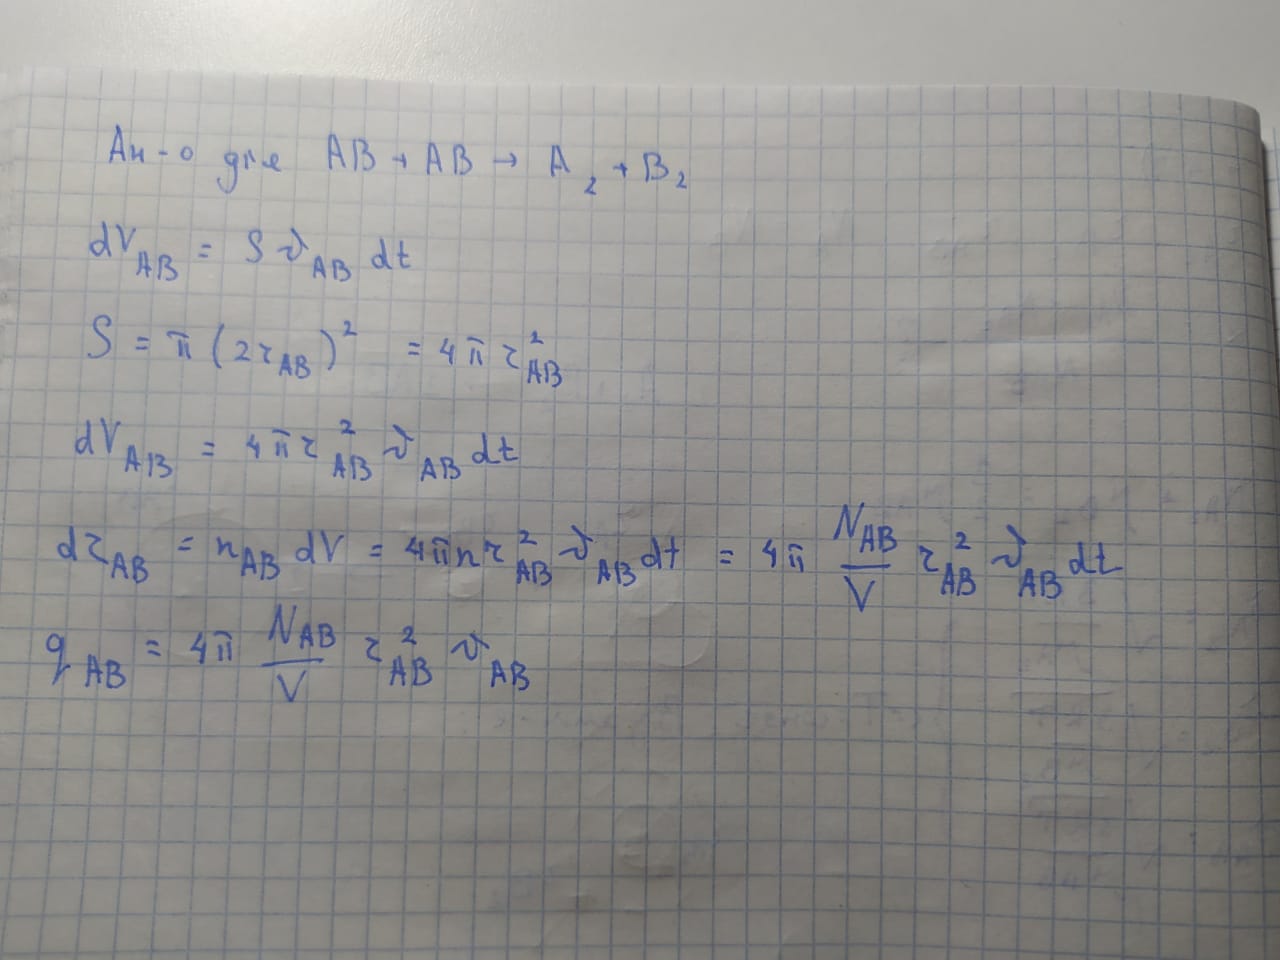 Ан-о для AB + AB → A₂ + B₂
dV_AB = S υ_AB dt
S = π (2r_AB)² = 4π r²_AB
dV_AB = 4π r²_AB υ_AB dt
dr_AB = n_AB dV = 4π n r²_AB υ_AB dt = 4π N_AB/V r²_AB υ_AB dt
q_AB = 4π N_AB/V r²_AB υ_AB